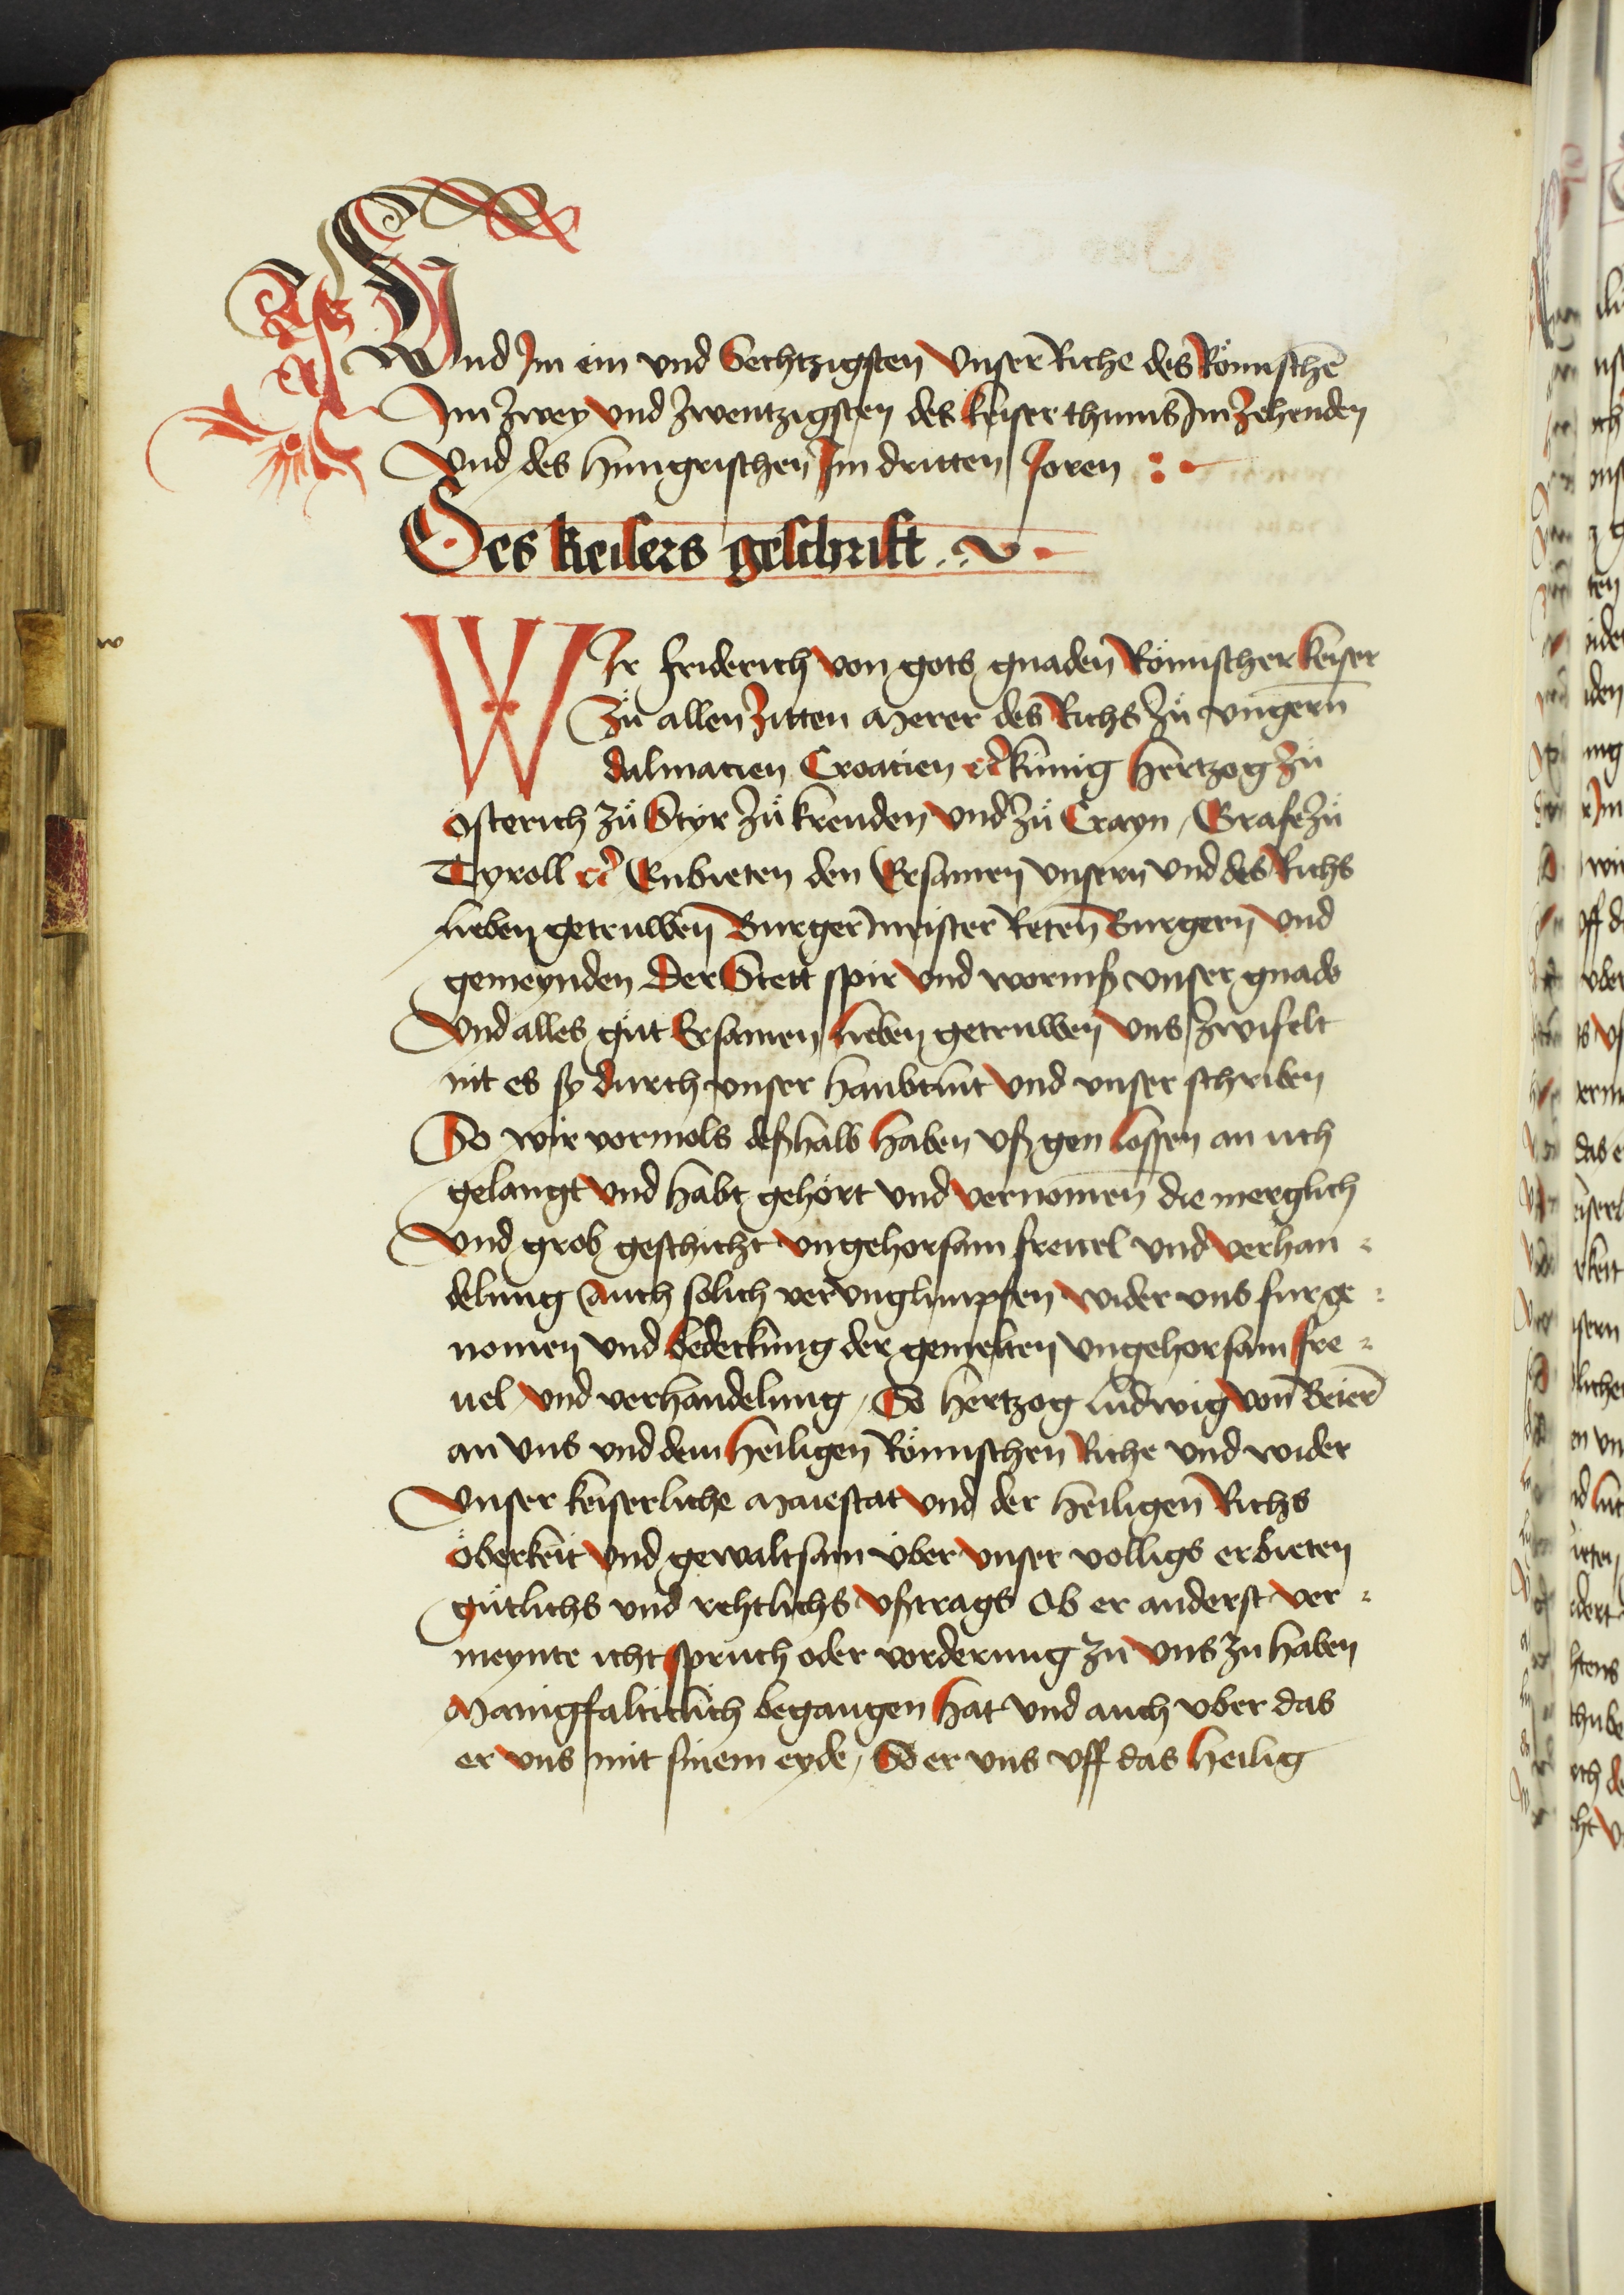 Und Im ein vnd Sechtzigsten Vnser Riche des Römischē
Im zwey vnd zwentzigsten des keiserthums Im zehenden
Vnd des hungrischen Im dritten Joren :
Des keisers geschrift
WIr friderich von gots gnaden Römischer keiser
Zů allen zitten Merer des Richs zů vngern̄
dalmatien Croatien ꝛc̃ kúnig hertzog zů
österich zů Styr zů kernden vnd zů Crayn / Grafe zů
Tyroll ꝛc̃ Enbieten den Ersamen vnsern vnd des Richs
lieben getruwen Burgermeister Reten Burgern vnd
gemeynden der Stett spir vnd wormß vnser gnade
Vnd alles gůt Ersamen lieben getruwen vns zwifelt
nit es sy durch vnser haubtlüt vnd vnser schriben
So wir vormols deßhalb haben vß gen lossen an uch
gelangt vnd habt gehört vnd vernomen die merglich
Vnd grob geschicht vngehorsam freuel vnd verhan=
delung Auch solich verunglimpfen wider vns furge=
nomen vnd bedeckung der gemelten vngehorsam fre=
uel vnd verhandelung / So hertzog ludwig von Beiern
an vns vnd dem heiligen Römischen Riche vnd wider
Vnser keiserliche Maiestat vnd der heiligen Richs
öberkeit vnd gewaltsam über vnser volligs erbieten
gütlichs vnd rehtlichs vßtrags Ob er anderst ver=
meynte icht spruch oder vorderung zu vns zu haben
Manigfalticlich begangen hat vnd auch vber das
er vns mit sinem eyde / So er vns vff das heilig